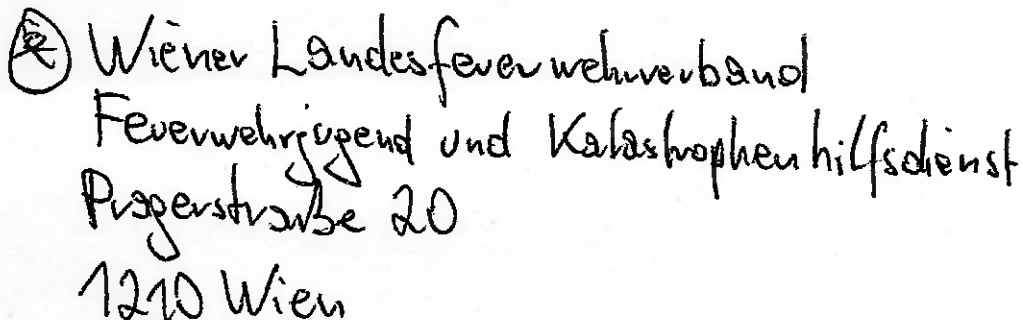 Wiener Landesfeuerwehrverband
Feuerwehrjugend und Katastrophenhilfsdienst
Pragerstraße 20
1210 Wien